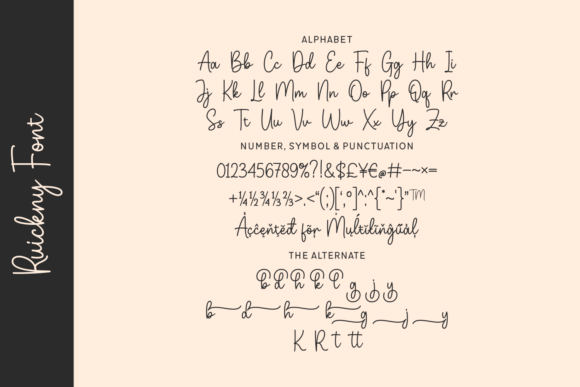 Ruickny Font
ALPHABET
Aa Bb Cc Dd Ee Ff Gg Hh Ii
Jj Kk Ll Mm Nn Oo Pp Qq Rr
Ss Tt Uu Vv Ww Xx Yy Zz
NUMBER, SYMBOL & PUNCTUATION
0123456789%?!&$£¥€@#—~×=
+¼½¾⅓⅔>.<“(;)[‘,°]^:^{*~'}”™
Accented for Multilingual
THE ALTERNATE
b d h k l g j y
b d h k g j y
K R t tt